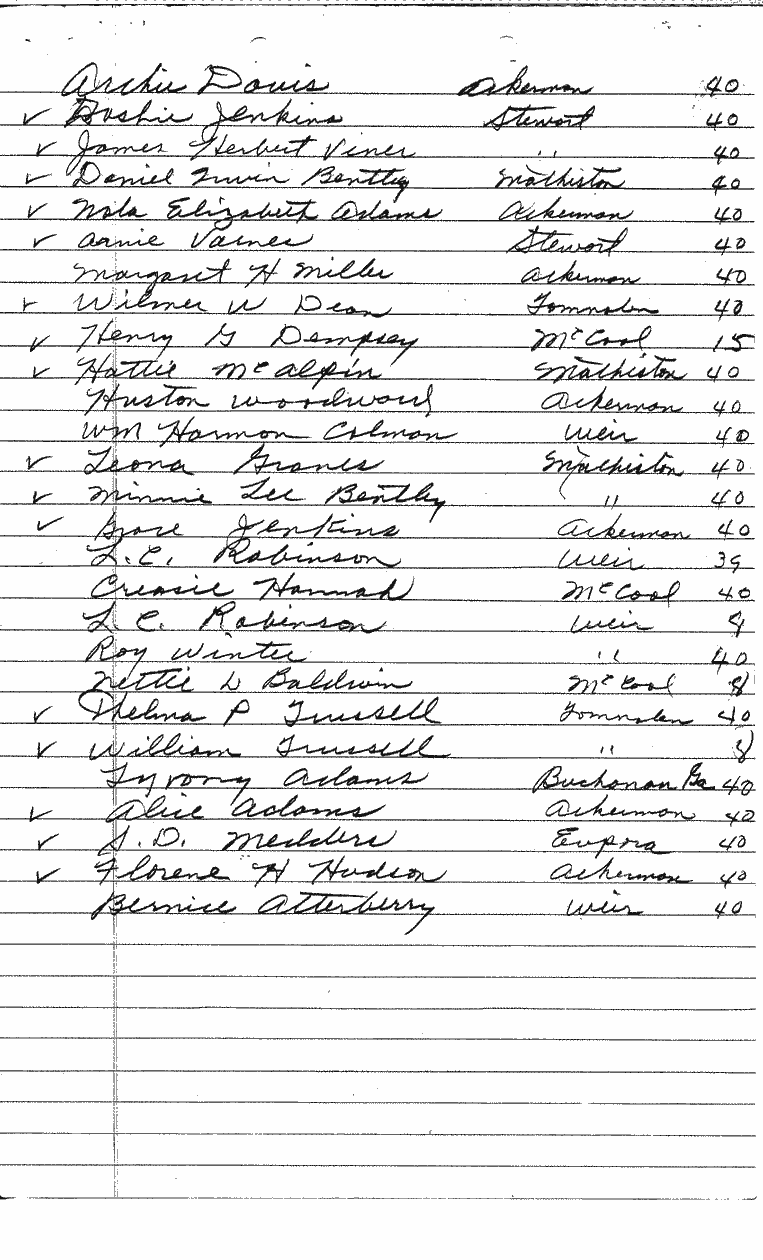 Archie Davis Ackerman 40
✓ Doshie Jenkins Stewart 40
✓ James Herbert Viner " 40
✓ Daniel Irwin Bentley Mathiston 40
✓ Nola Elizabeth Adams Ackerman 40
✓ Annie Varnes Stewart 40
Margaret H Miller Ackerman 40
✓ Wilmer W Dean Tomnolen 40
✓ Henry G Dempsey McCool 15
✓ Hattie McAlpin Mathiston 40
Huston Woodward Ackerman 40
Wm Harmon Colman Weir 40
✓ Leona Graves Mathiston 40
✓ Minnie Lee Bentley " 40
✓ Jenkins Ackerman 40
L.C. Robinson Weir 39
Creasie Hannah McCool 40
L.C. Robinson Weir
Roy Winter " 40
Nettie D Baldwin McCool 8
✓ Thelma P Trussell Tomnolen 40
✓ William Trussell " 8
Tyrony Adams Buchanan Ga 40
✓ Alice Adams Ackerman 40
✓ S.D. Medders Eupora 40
✓ Florene H Hudson Ackerman 40
Bernice Atterberry Weir 40